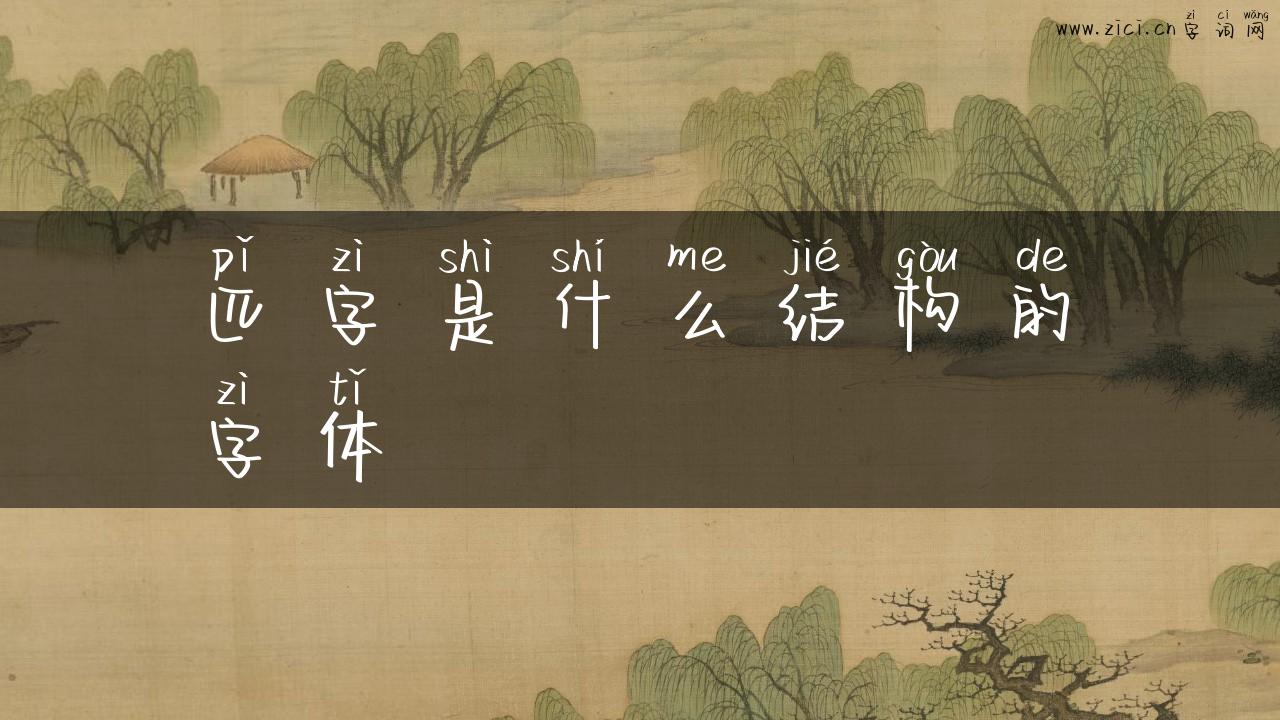 zì cí wǎng
www.zici.cn 字词网
pǐ zì shì shí me jié gòu de
匹字是什么结构的
zì tǐ
字体